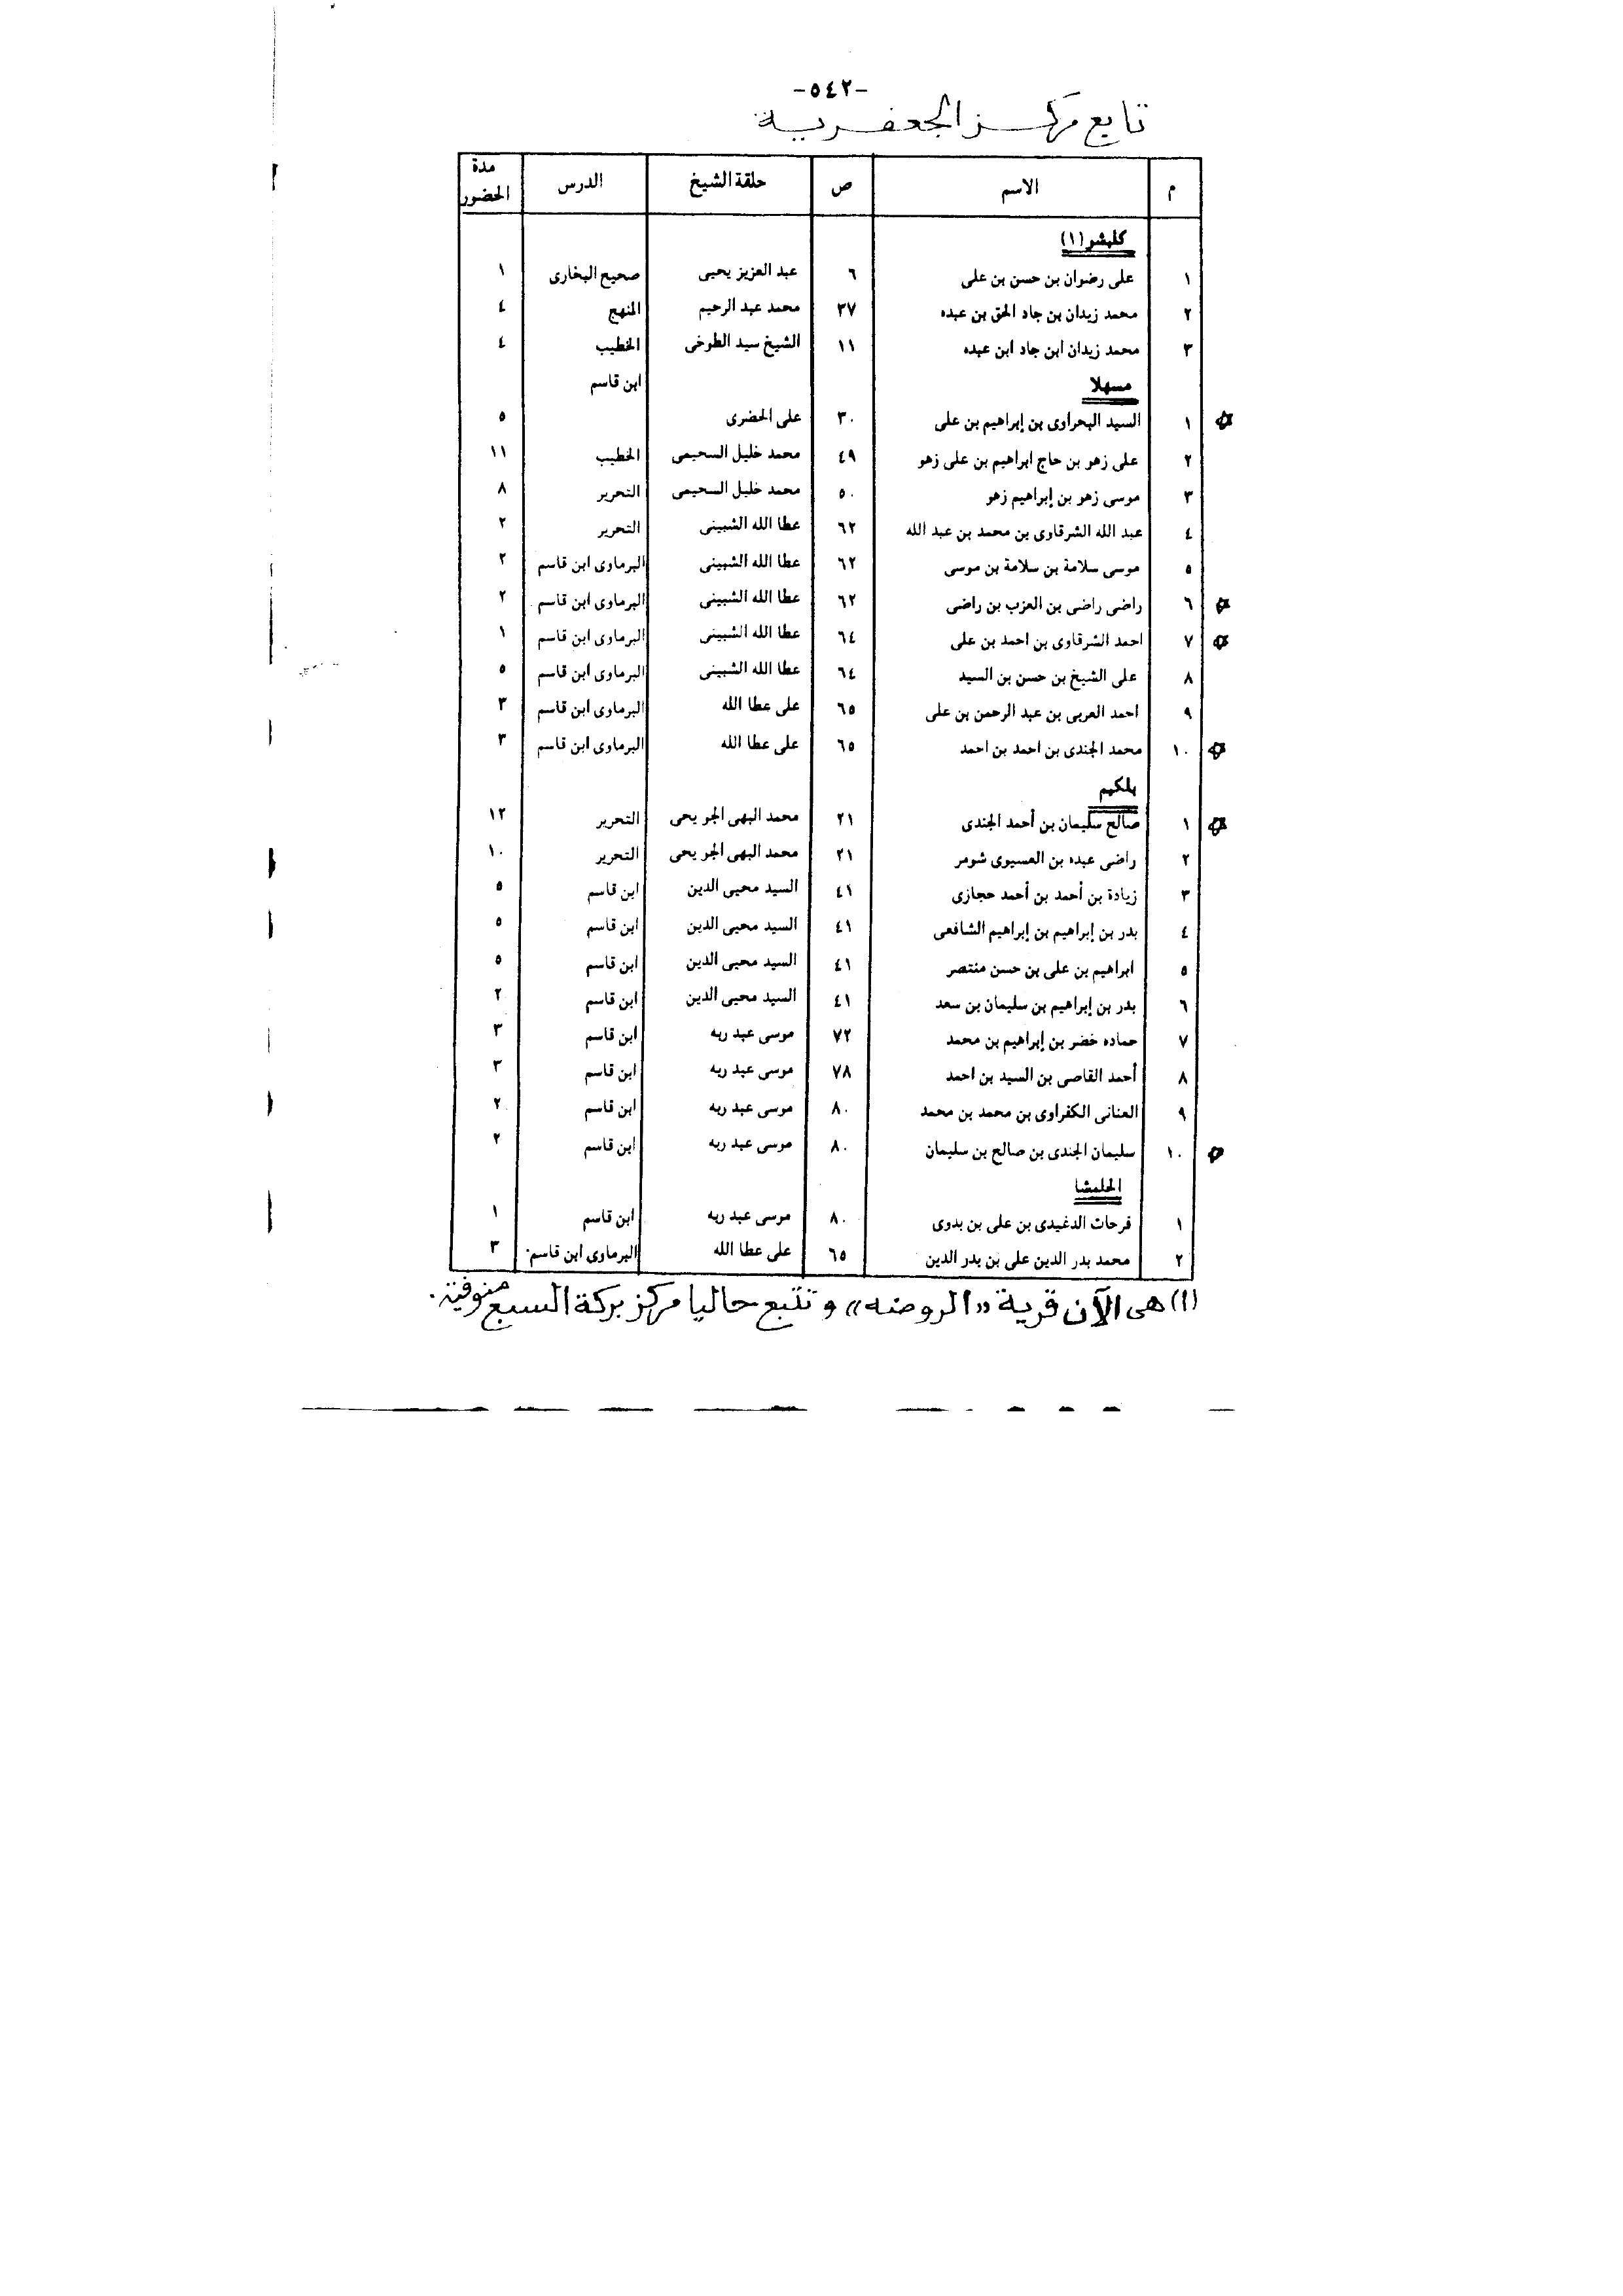 -٥٤٢-
تابع مركز الجعفرية
م الاسم ص حلقة الشيخ الدرس مدة الحضور
كلبشو (١)
١ على رضوان بن حسن بن على ٦ عبد العزيز يحيى صحيح البخارى ١
٢ محمد زيدان بن جاد الحق بن عبده ٣٧ محمد عبد الرحيم المنهج ٤
٣ محمد زيدان ابن جاد ابن عبده ١١ الشيخ سيد الطوخى الخطيب ٤
مسهلا ابن قاسم
١ السيد البحراوى بن إبراهيم بن على ٣٠ على الحضرى ٥
٢ على زهو بن حاج ابراهيم بن على زهو ٤٩ محمد خليل السحيمى الخطيب ١١
٣ موسى زهو بن إبراهيم زهو ٥٠ محمد خليل السحيمى التحرير ٨
٤ عبد الله الشرقاوى بن محمد بن عبد الله ٦٢ عطا الله الشبينى التحرير ٢
٥ موسى سلامة بن سلامة بن موسى ٦٢ عطا الله الشبينى البرماوى ابن قاسم ٢
٦ راضى راضى بن العزب بن راضى ٦٢ عطا الله الشبينى البرماوى ابن قاسم ٢
٧ احمد الشرقاوى بن احمد بن على ٦٤ عطا الله الشبينى البرماوى ابن قاسم ١
٨ على الشيخ بن حسن بن السيد ٦٤ عطا الله الشبينى البرماوى ابن قاسم ٥
٩ احمد العربى بن عبد الرحمن بن على ٦٥ على عطا الله البرماوى ابن قاسم ٣
١٠ محمد الجندى بن احمد بن احمد ٦٥ على عطا الله البرماوى ابن قاسم ٣
بلكيم
١ صالح سليمان بن أحمد الجندى ٢١ محمد البهى الجويحى التحرير ١٢
٢ راضى عبده بن العسيوى شومر ٢١ محمد البهى الجويحى التحرير ١٠
٣ زيادة بن أحمد بن أحمد حجازى ٤١ السيد محيى الدين ابن قاسم ٥
٤ بدر بن إبراهيم بن إبراهيم الشافعى ٤١ السيد محيى الدين ابن قاسم ٥
٥ ابراهيم بن على بن حسن منتصر ٤١ السيد محيى الدين ابن قاسم ٥
٦ بدر بن إبراهيم بن سليمان بن سعد ٤١ السيد محيى الدين ابن قاسم ٢
٧ حماده خضر بن إبراهيم بن محمد ٧٢ موسى عبد ربه ابن قاسم ٣
٨ أحمد القاصى بن السيد بن احمد ٧٨ موسى عبد ربه ابن قاسم ٣
٩ العنانى الكفراوى بن محمد بن محمد ٨٠ موسى عبد ربه ابن قاسم ٢
١٠ سليمان الجندى بن صالح بن سليمان ٨٠ موسى عبد ربه ابن قاسم ٢
الحلمشا
١ فرحات الدغيدى بن على بن بدوى ٨٠ موسى عبد ربه ابن قاسم ١
٢ محمد بدر الدين على بن بدر الدين ٦٥ على عطا الله البرماوى ابن قاسم ٣
(١) هى الآن قرية «الروضه» وتتبع حاليا مركز بركة السبع منوفية.